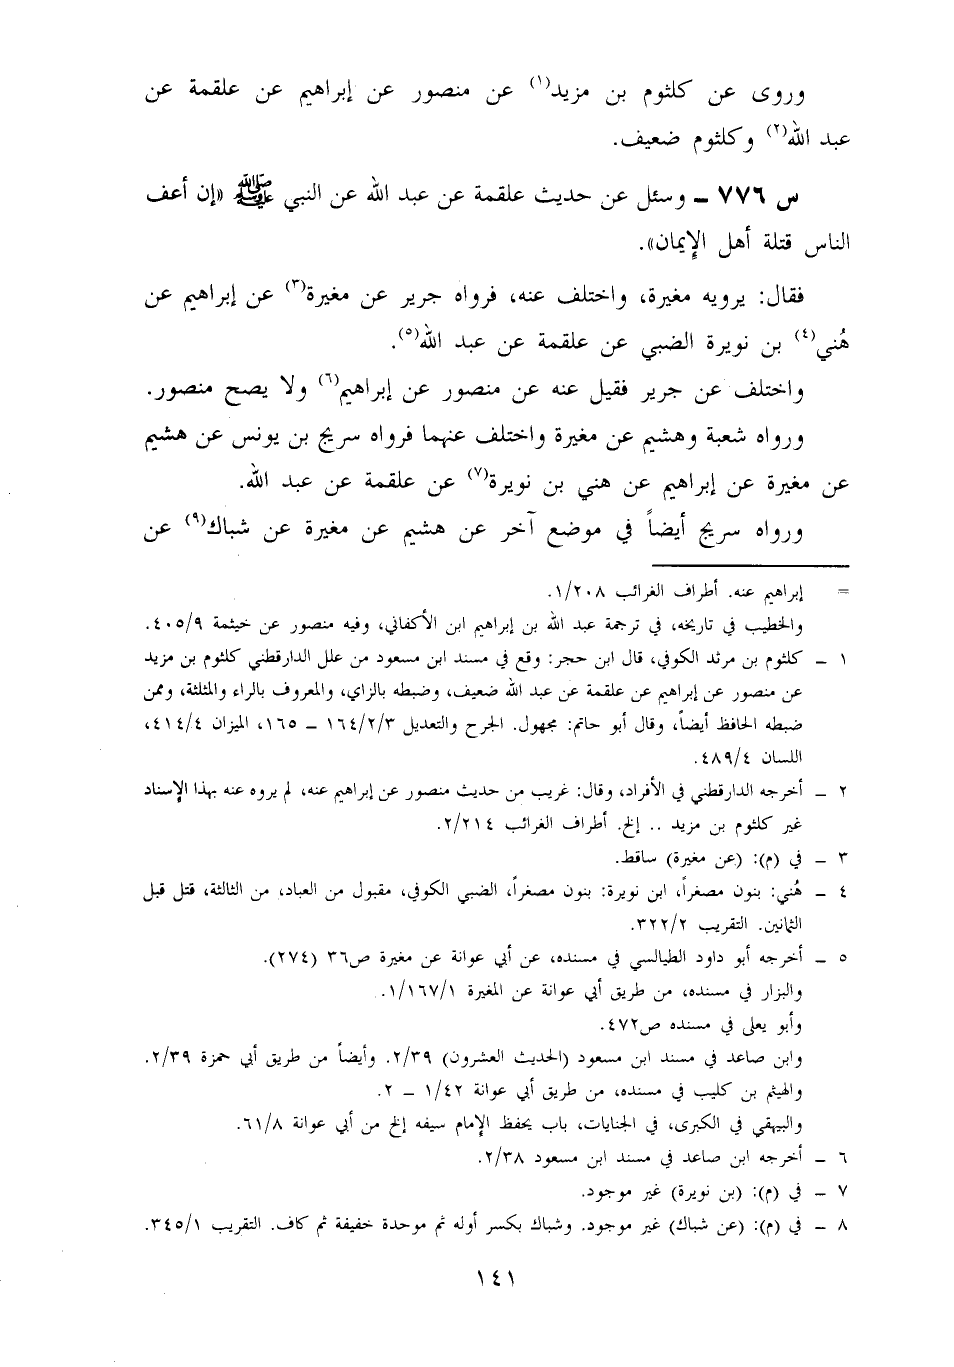 وروى عن كلثوم بن مزيد(١) عن منصور عن إبراهيم عن علقمة عن
عبد الله(٢) وكلثوم ضعيف.
س ٧٧٦ ــ وسئل عن حديث علقمة عن عبد الله عن النبي ﷺ «إن أعف
الناس قتلة أهل الإيمان».
فقال: يرويه مغيرة، واختلف عنه، فرواه جرير عن مغيرة(٣) عن إبراهيم عن
هُني(٤) بن نويرة الضبي عن علقمة عن عبد الله(٥).
واختلف عن جرير فقيل عنه عن منصور عن إبراهيم(٦) ولا يصح منصور.
ورواه شعبة وهشيم عن مغيرة واختلف عنهما فرواه سريج بن يونس عن هشيم
عن مغيرة عن إبراهيم عن هني بن نويرة(٧) عن علقمة عن عبد الله.
ورواه سريج أيضاً في موضع آخر عن هشيم عن مغيرة عن شباك(٩) عن
= إبراهيم عنه. أطراف الغرائب ١/٢٠٨.
والخطيب في تاريخه، في ترجمة عبد الله بن إبراهيم ابن الأكفاني، وفيه منصور عن خيثمة ٤٠٥/٩.
١ ــ كلثوم بن مرثد الكوفي، قال ابن حجر: وقع في مسند ابن مسعود من علل الدارقطني كلثوم بن مزيد
عن منصور عن إبراهيم عن علقمة عن عبد الله ضعيف، وضبطه بالزاي، والمعروف بالراء والمثلثة، وممن
ضبطه الحافظ أيضاً، وقال أبو حاتم: مجهول. الجرح والتعديل ١٦٤/٢/٣ ــ ١٦٥، الميزان ٤١٤/٤،
اللسان ٤٨٩/٤.
٢ ــ أخرجه الدارقطني في الأفراد، وقال: غريب من حديث منصور عن إبراهيم عنه، لم يروه عنه بهذا الإسناد
غير كلثوم بن مزيد .. إلخ. أطراف الغرائب ٢/٢١٤.
٣ ــ في (م): (عن مغيرة) ساقط.
٤ ــ هُني: بنون مصغراً، ابن نويرة: بنون مصغراً، الضبي الكوفي، مقبول من العباد، من الثالثة، قتل قبل
الثمانين. التقريب ٣٢٢/٢.
٥ ــ أخرجه أبو داود الطيالسي في مسنده، عن أبي عوانة عن مغيرة ص٣٦ (٢٧٤).
والبزار في مسنده، من طريق أبي عوانة عن المغيرة ١/١٦٧/١.
وأبو يعلى في مسنده ص٤٧٢.
وابن صاعد في مسند ابن مسعود (الحديث العشرون) ٢/٣٩. وأيضاً من طريق أبي حمزة ٢/٣٩.
والهيثم بن كليب في مسنده، من طريق أبي عوانة ١/٤٢ ــ ٢.
والبيهقي في الكبرى، في الجنايات، باب يحفظ الإمام سيفه إلخ من أبي عوانة ٦١/٨.
٦ ــ أخرجه ابن صاعد في مسند ابن مسعود ٢/٣٨.
٧ ــ في (م): (بن نويرة) غير موجود.
٨ ــ في (م): (عن شباك) غير موجود. وشباك بكسر أوله ثم موحدة خفيفة ثم كاف. التقريب ٣٤٥/١.
١٤١